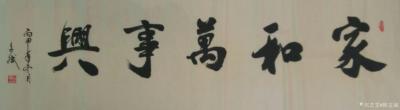 家和萬事興
丙申年冬月